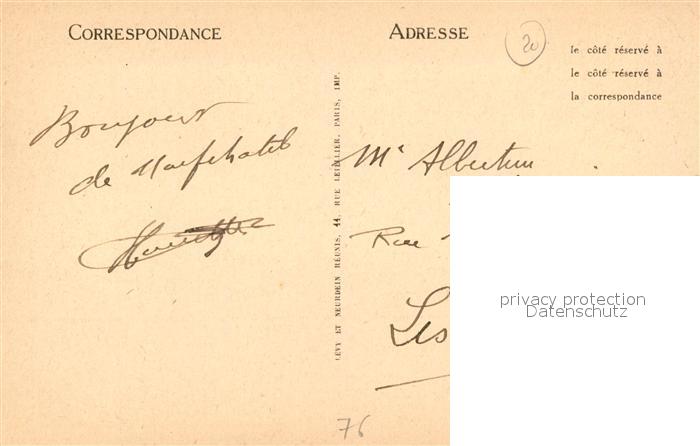 CORRESPONDANCE
ADRESSE
20
le côté réservé à
le côté réservé à
la correspondance
Bonjour
de Neufchatel
LÉVY ET NEURDEIN RÉUNIS, 44, RUE LETELLIER, PARIS, IMP.
Mr
Rue
Les
privacy protection
Datenschutz
76